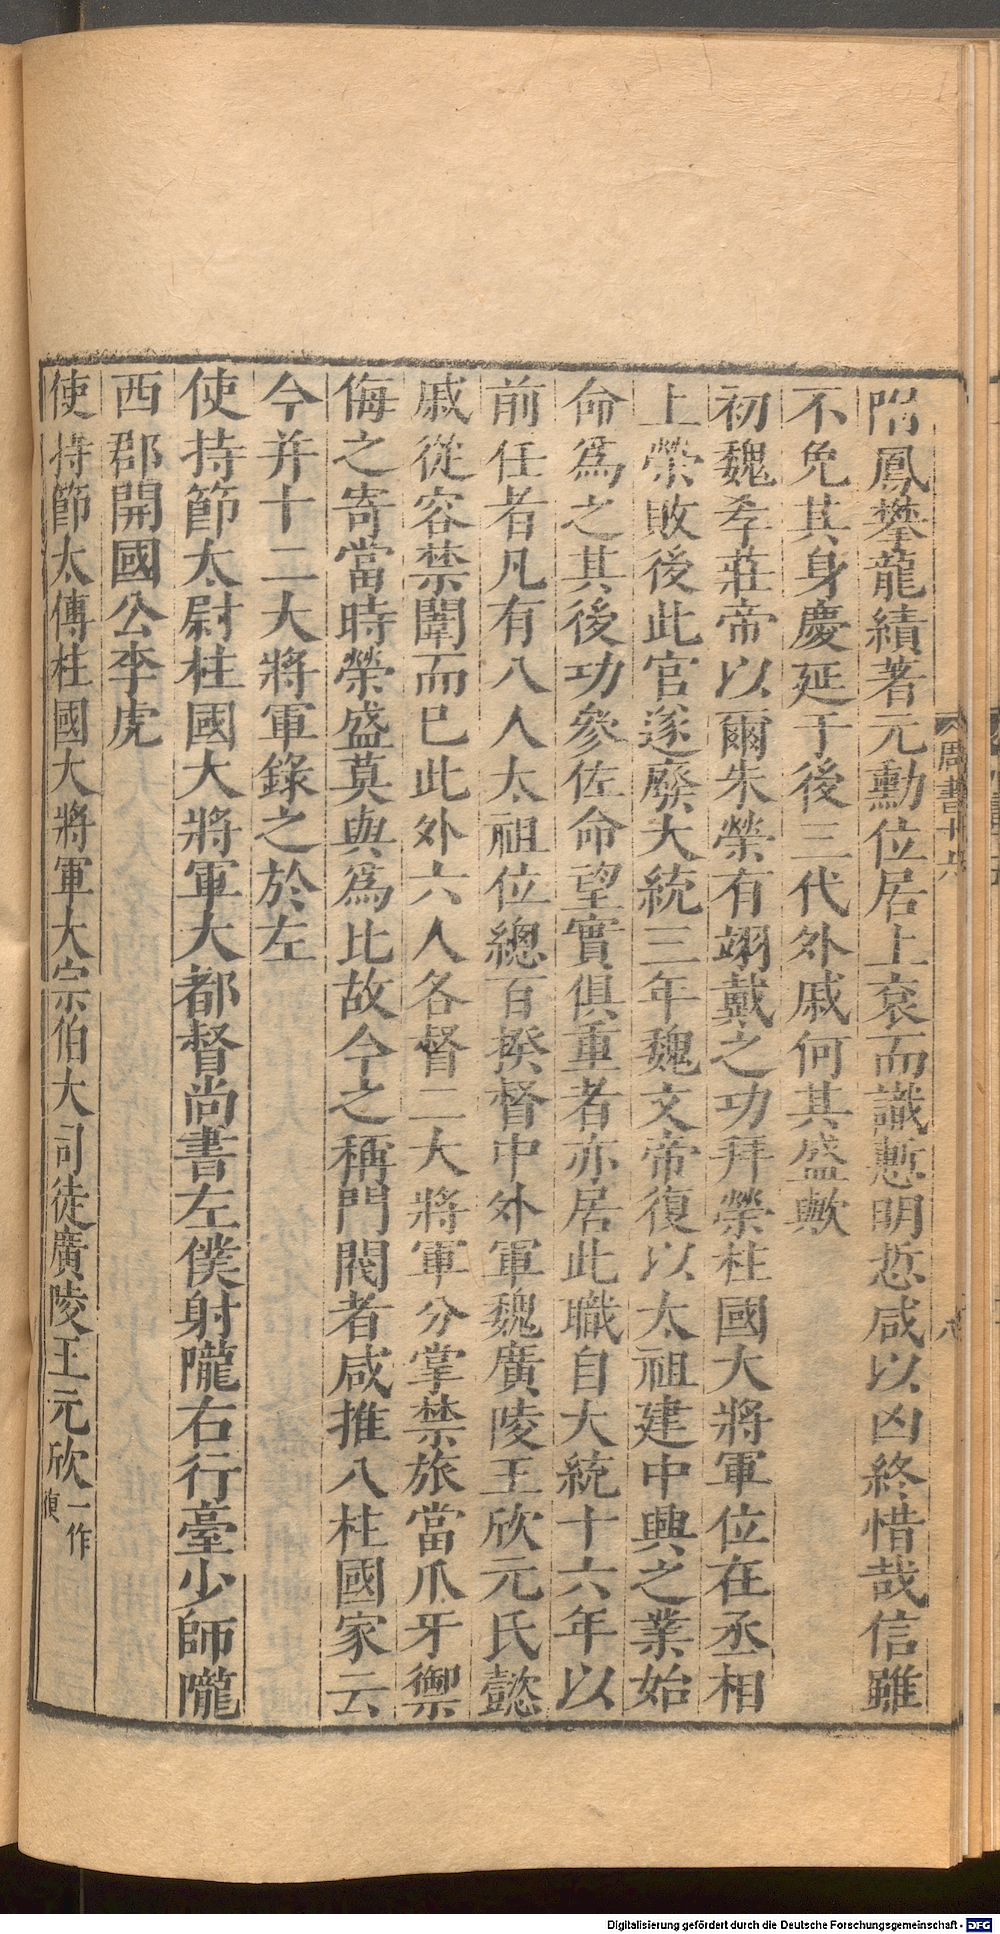 附鳳攀龍績著元勳位居上袞而識慙明悊咸以凶終惜哉信雖
不免其身慶延于後三代外戚何其盛歟
初魏孝莊帝以爾朱榮有翊戴之功拜榮柱國大將軍位在丞相
上榮敗後此官遂廢大統三年魏文帝復以太祖建中興之業始
命爲之其後功參佐命望實俱重者亦居此職自大統十六年以
前任者凡有八人太祖位總百揆督中外軍魏廣陵王欣元氏懿
戚從容禁闈而已此外六人各督二大將軍分掌禁旅當爪牙禦
侮之寄當時榮盛莫與爲比故今之稱門閥者咸推八柱國家云
今并十二大將軍錄之於左
使持節太尉柱國大將軍大都督尚書左僕射隴右行臺少師隴
西郡開國公李虎
使持節太傅柱國大將軍大宗伯大司徒廣陵王元欣一作
周書十六
八
Digitalisierung gefördert durch die Deutsche Forschungsgemeinschaft - DFG